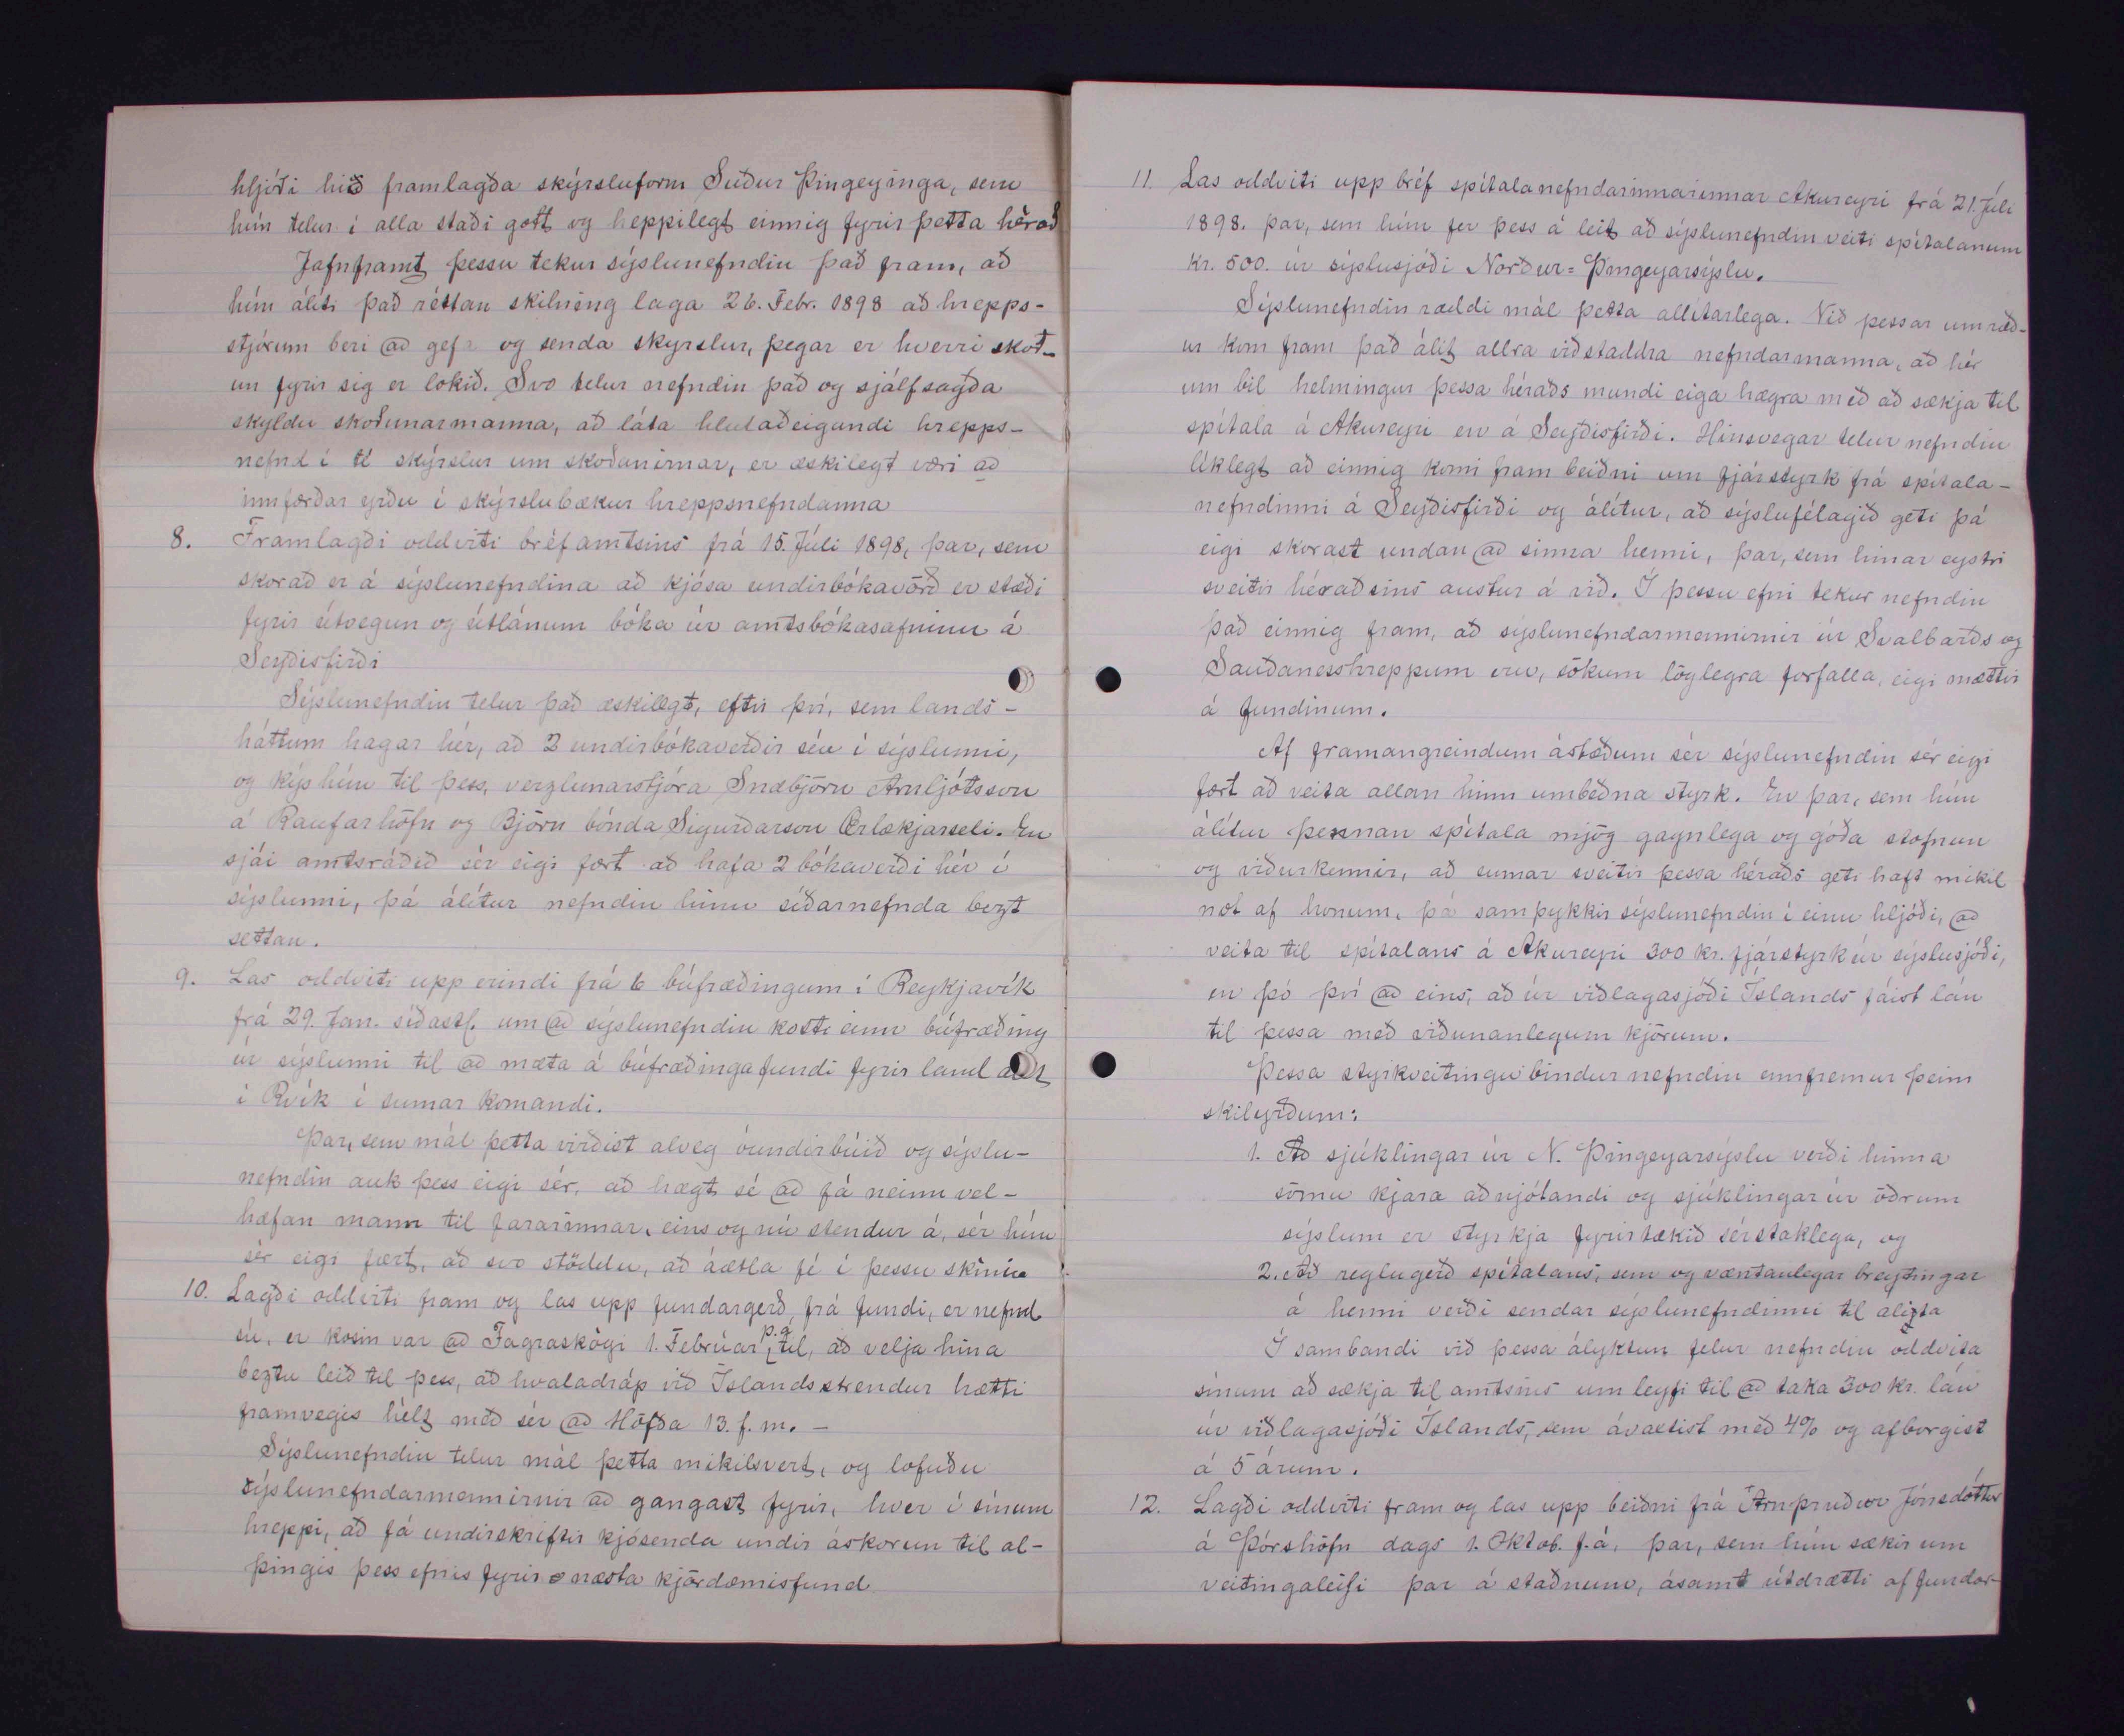 hljóði hið framlagða skýrsluform Suður Þingeyinga, sem
hún telur í alla staði gott og heppilegt einnig fyrir þetta hérað
Jafnframt þessu tekur sýslunefndin það fram, að
hún áliti það réttan skilning laga 26. Febr. 1898 að hrepps-
stjórum beri @ gefa og senda skyrslur, þegar er hverri skoð-
un fyrir sig er lokið. Svo telur nefndin það og sjálfsagða
skyldu skoðunarmanna, að láta hlutaðeigandi hrepps-
nefnd í té skýrslur um skoðanirnar, er æskilegt væri að
innfærðar yrðu í skýrslubækur hreppsnefndanna
8. Framlagði oddviti bréf amtsins frá 15. Júli 1898, þar, sem
skorað er á sýslunefndina að kjósa undirbókavörð er stæði
fyrir útvegun og útlánum bóka úr amtsbókasafninu á
Seyðisfirði
Sýslunefndin telur það æskilegt, eftir því, sem lands-
háttum hagar hér, að 2 undirbókaverðir séu í sýslunni,
og kýs hún til þess, verzlunarstjóra Snæbjörn Arnljótsson
á Raufarhöfn og Björn bónda Sigurðarson Ærlækjarseli. En
sjái amtsráðið sér eigi fært að hafa 2 bókaverði hér í
sýslunni, þá álítur nefndin hinn síðarnefnda bezt
settan.
9. Las oddviti upp erindi frá 6 búfræðingum í Reykjavík
frá 29. Jan. síðastl. um @ sýslunefndin kosti einn búfræðing
úr sýslunni til @ mæta á búfræðingafundi fyrir land allt
í Rvík í sumar komandi.
Þar, sem mál þetta virðist alveg óundirbúið og sýslu-
nefndin auk þess eigi sér, að hægt sé @ fá neinn vel-
hæfan mann til fararinnar, eins og nú stendur á, sér hún
sér eigi fært, að svo stöddu, að áætla fé í þessu skini
10. Lagði oddviti fram og las upp fundargerð, frá fundi, er nefnd
sú, er kosin var @ Fagraskógi 1. Febrúar p.a. til, að velja hina
beztu leið til þess, að hvaladráp við Íslandsstrendur hætti
framvegis hélt með sér @ Höfða 13. f. m. -
Sýslunefndin telur mál þetta mikilsvert, og lofuðu
sýslunefndarmennirnir @ gangast fyrir, hver í sínum
hreppi, að fá undirskriftir kjósenda undir áskorun til al-
þingis þess efnis fyrir næsta kjördæmisfund
11. Las oddviti upp bréf spítalanefndarinnarinnar Akureyri frá 21. Júli
1898. þar, sem hún fer þess á leit að sýslunefndin veiti spítalanum
Kr. 500. úr sýslusjóði Norður=Þingeyarsýslu.
Sýslunefndin ræddi mál þetta allítarlega. Við þessar umræð-
ur kom fram það álit allra viðstaddra nefndarmanna, að hér
um bil helmingur þessa héraðs mundi eiga hægra með að sækja til
spítala á Akureyri en á Seyðisfirði. Hinsvegar telur nefndin
líklegt að einnig komi fram beiðni um fjárstyrk frá spítala-
nefndinni á Seyðisfirði og álítur, að sýslufélagið geti þá
eigi skorast undan @ sinna henni, þar, sem hinar eystri
sveitir héraðsins austur á við. Í þessu efni tekur nefndin
það einnig fram, að sýslunefndarmennirnir úr Svalbarðs og
Sauðanesshreppum eru, sökum löglegra forfalla, eigi mættir
á fundinum.
Af framangreindum ástæðum sér sýslunefndin sér eigi
fært að veita allan hinn umbeðna styrk. En þar, sem hún
álítur þennan spítala mjög gagnlega og góða stofnun
og viðurkennir, að sumar sveitir þessa héraðs geti haft mikil
not af honum, þá samþykkir sýslunefndin í einu hljóði, @
veita til spítalans á Akureyri 300 kr. fjárstyrk úr sýslusjóði,
en þó því @ eins, að úr viðlagasjóði Íslands fáist lán
til þessa með viðunanlegum kjörum.
Þessa styrkveitingu bindur nefndin ennfremur þeim
skilyrðum:
1. Að sjúklingar úr N. Þingeyarsýslu verði hinna
sömu kjara aðnjótandi og sjúklingar úr öðrum
sýslum er styrkja fyrirtækið sérstaklega, og
2. Að reglugerð spítalans, sem og væntanlegar breytingar
á henni verði sendar sýslunefndinni til álita
Í sambandi við þessa ályktun felur nefndin oddvita
sínum að sækja til amtsins um leyfi til @ taka 300 kr. lán
úr viðlagasjóði Íslands, sem ávaxtist með 4% og afborgist
á 5 árum.
12. Lagði oddviti fram og las upp beiðni frá Arnþruður Jónsdóttur
á Þórshöfn dags 1. Oktob. f.á. þar, sem hún sækir um
veitingaleifi þar á staðnum, ásamt útdrætti af fundar-